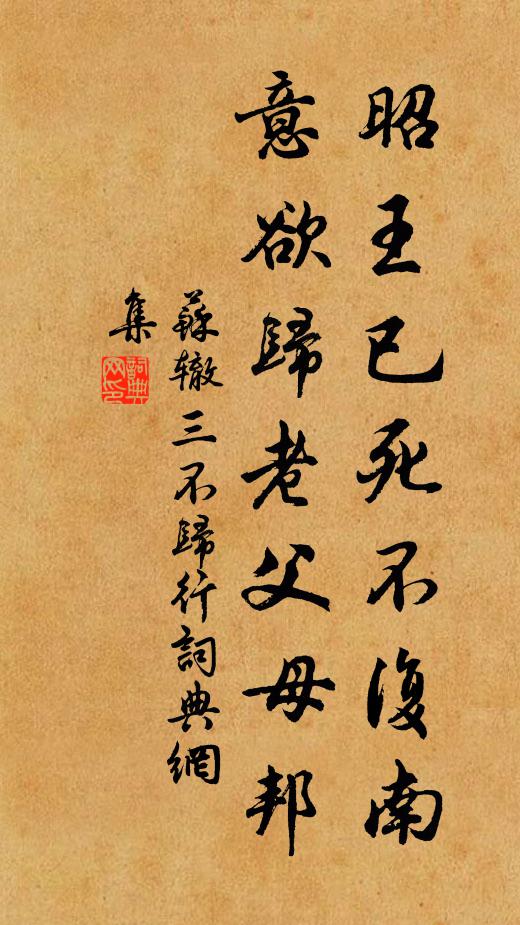 昭王已死不復南
意欲歸老父母邦
蘇辙三不歸行詞典網
集
詞典
网印